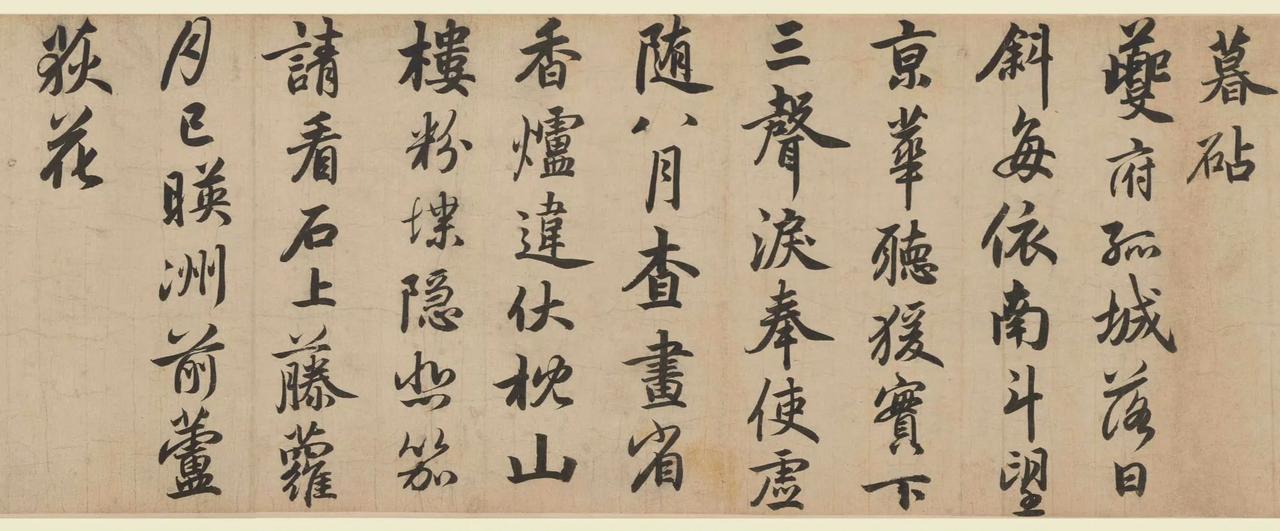 暮砧
夔府孤城落日
斜每依南斗望
京華聽猨實下
三聲淚奉使虛
随八月査畫省
香爐違伏枕山
樓粉堞隠悲笳
請看石上藤蘿
月已暎洲前蘆
荻花